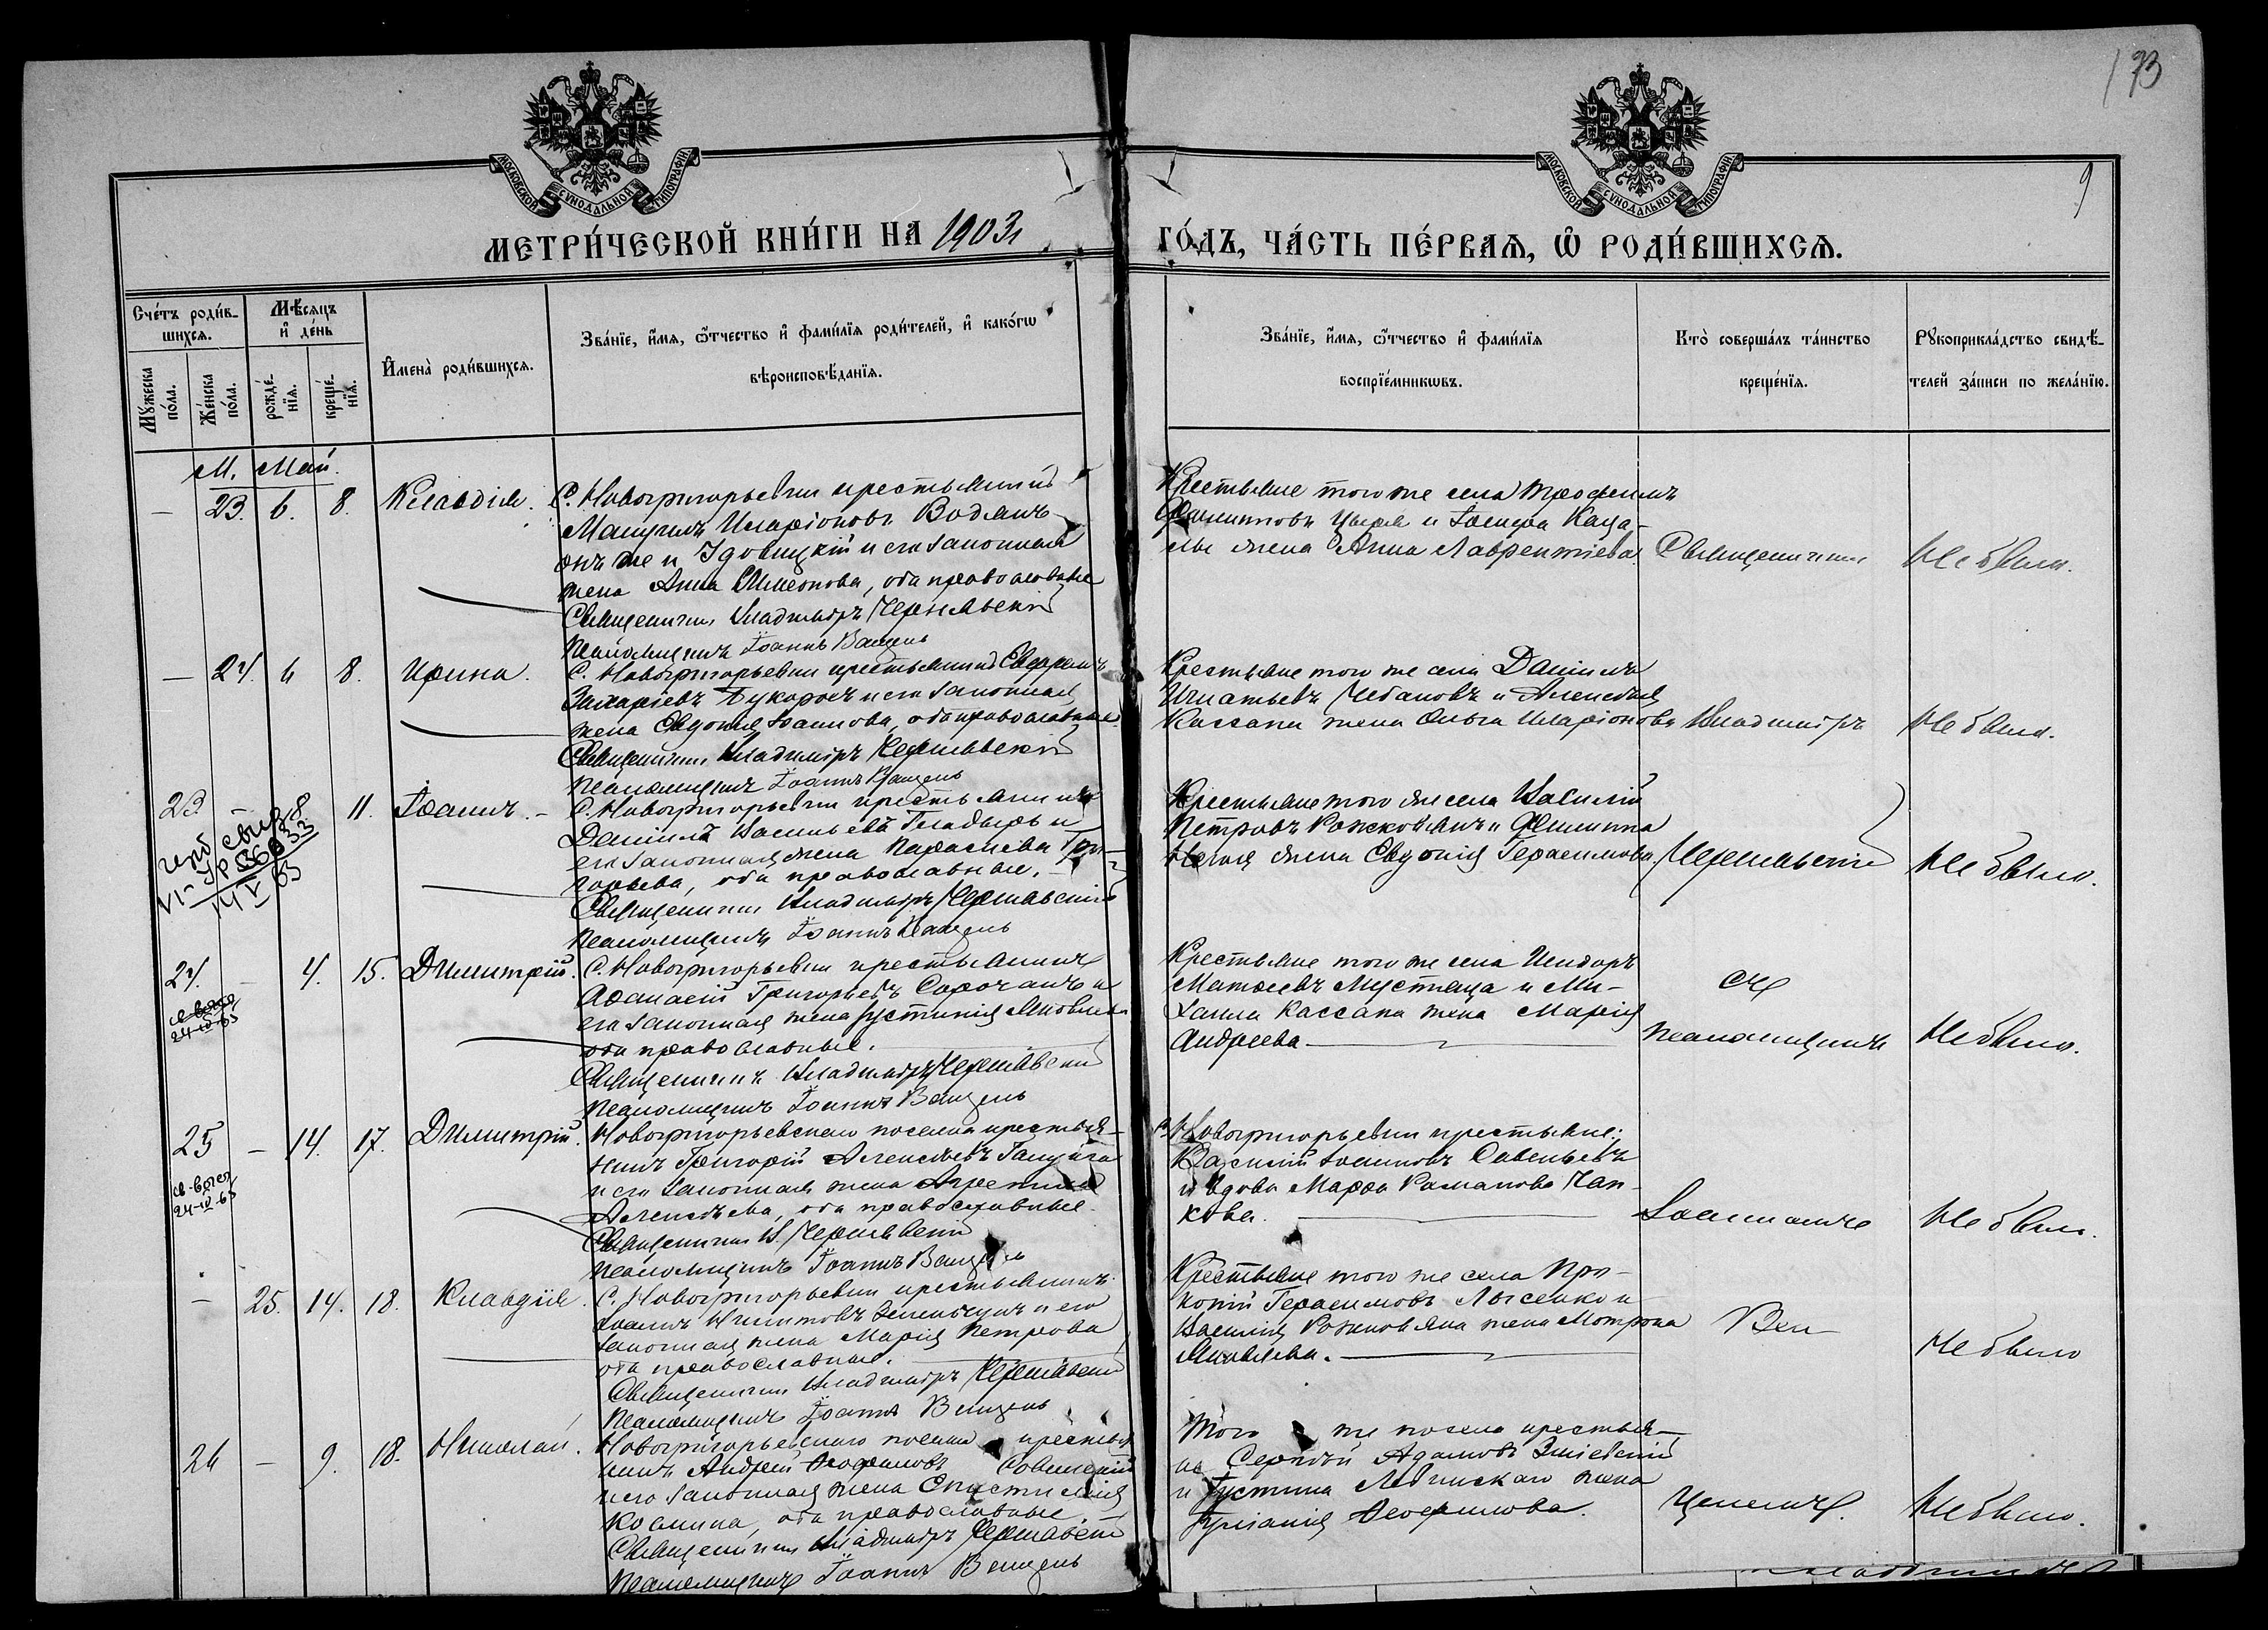 173
9
МОСКОВСКОЙ СѴНОДАЛЬНОЙ ТИПОГРАФІИ.
МОСКОВСКОЙ СѴНОДАЛЬНОЙ ТИПОГРАФІИ.
МЕТРИ́ЧЕСКОЙ КНИ́ГИ НА 1903 г.
ГО́ДЪ, ЧА́СТЬ ПЕ́РВАЯ, Ѡ РОДИ́ВШИХСЯ.
Сче́тъ роди́в-
шихся.
Мѣ́сяцъ
и҆ де́нь
Мꙋ́жеска
по́ла.
Же́нска
по́ла.
рожде́-
нїя.
креще́-
нїя.
И҆мена̀ роди́вшихся.
Зва́нїе, и҆́мя, ѻ҆́тчество и҆ фами́лїя роди́телей, и҆ како́гѡ
вѣроисповѣ́данїя.
Зва́нїе, и҆́мя, ѻ҆́тчество и҆ фами́лїя
воспрїе́мникѡвъ.
Кто̀ соверша́лъ та́инство
креще́нїя.
Рꙋкоприкла́дство свидѣ́-
телей за́писи по жела́нїю.
М. Май.
— 23. 6. 8. Клавдія.
С. Новогригорьевки крестьянинъ
Иларіоновъ Водянъ
онъ же и Здовицкій и его законная
жена Анна Симеонова, оба православные
Священникъ Владиміръ Чернявскій
Псаломщикъ Іоаннъ
Крестьяне того же села Трофимъ
Филипповъ Цыря и Іосифа Каца-
жена Анна Лаврентіева.
Священникъ
Не было.
— 24. 6 8. Ирина.
С. Новогригорьевки крестьянинъ
Захаріевъ и его законная
жена Евдокія Іоаннова, оба православные.
Священникъ Владиміръ Чернявскій
Псаломщикъ Іоаннъ
Крестьяне того же села Даніилъ
Игнатьевъ Чебановъ и Алексѣя
Кассапа жена Ольга Иларіонова
Владиміръ
Не было.
23 — 8. 11. Іоаннъ. -
С. Новогригорьевки крестьянинъ
Даніилъ Васильевъ Гладырь и
его законная жена Параскева Гри-
горьева, оба православные.
Священникъ Владиміръ Чернявскій
Псаломщикъ Іоаннъ
Крестьяне того же села Василій
Петровъ и Филиппа
жена Евдокія Герасимова.
Чернявскій
Не было.
24. — 4. 15. Димитрій.
24-IV-65
С. Новогригорьевки крестьянинъ
Аѳанасій Григорьевъ Сорочанъ и
его законная жена Іустинія Яковлева
оба православные.
Священникъ Владиміръ Чернявскій
Псаломщикъ Іоаннъ
Крестьяне того же села Исидоръ
Матѳеевъ Мустяца и Ми-
хаила Кассапа жена Марія
Андреева
съ
псаломщикомъ
Не было.
25 — 14. 17. Димитрій.
24-IV-65
Новогригорьевскаго поселка крестья-
нинъ Григорій Алексѣевъ
и его законная жена
Алексѣева, оба православные.
Священникъ В. Чернявскій
Псаломщикъ Іоаннъ
С. Новогригорьевки крестьяне:
Василій Іоанновъ Савельевъ
и вдова Марѳа Романова Чай-
кова.
Іоанномъ
Не было.
— 25. 14. 18. Клавдія.
С. Новогригорьевки крестьянинъ
Іоаннъ Никитовъ и его
законная жена Марія Петрова
оба православные.
Священникъ Владиміръ Чернявскій
Псаломщикъ Іоаннъ
Крестьяне того же села Про-
копій Герасимовъ Лысенко и
Василія жена Мотрона
Яковлева.
Вен-
Не было
26 — 9. 18. Николай.
Новогригорьевскаго поселка крестья-
нинъ Андрей Ѳеофиловъ
и его законная жена
Космина, оба православные.
Священникъ Владиміръ Чернявскій
Псаломщикъ Іоаннъ
Того же поселка крестья-
не Сергѣй Адамовъ Зміевскій
и Іустина жена
Іуліанія Ѳеофилова.
целемъ.
Не было.